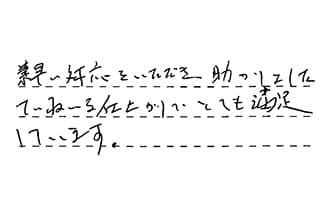 素早い対応をいただき助かりました
ていねいな仕上がりでとても満足
しています。